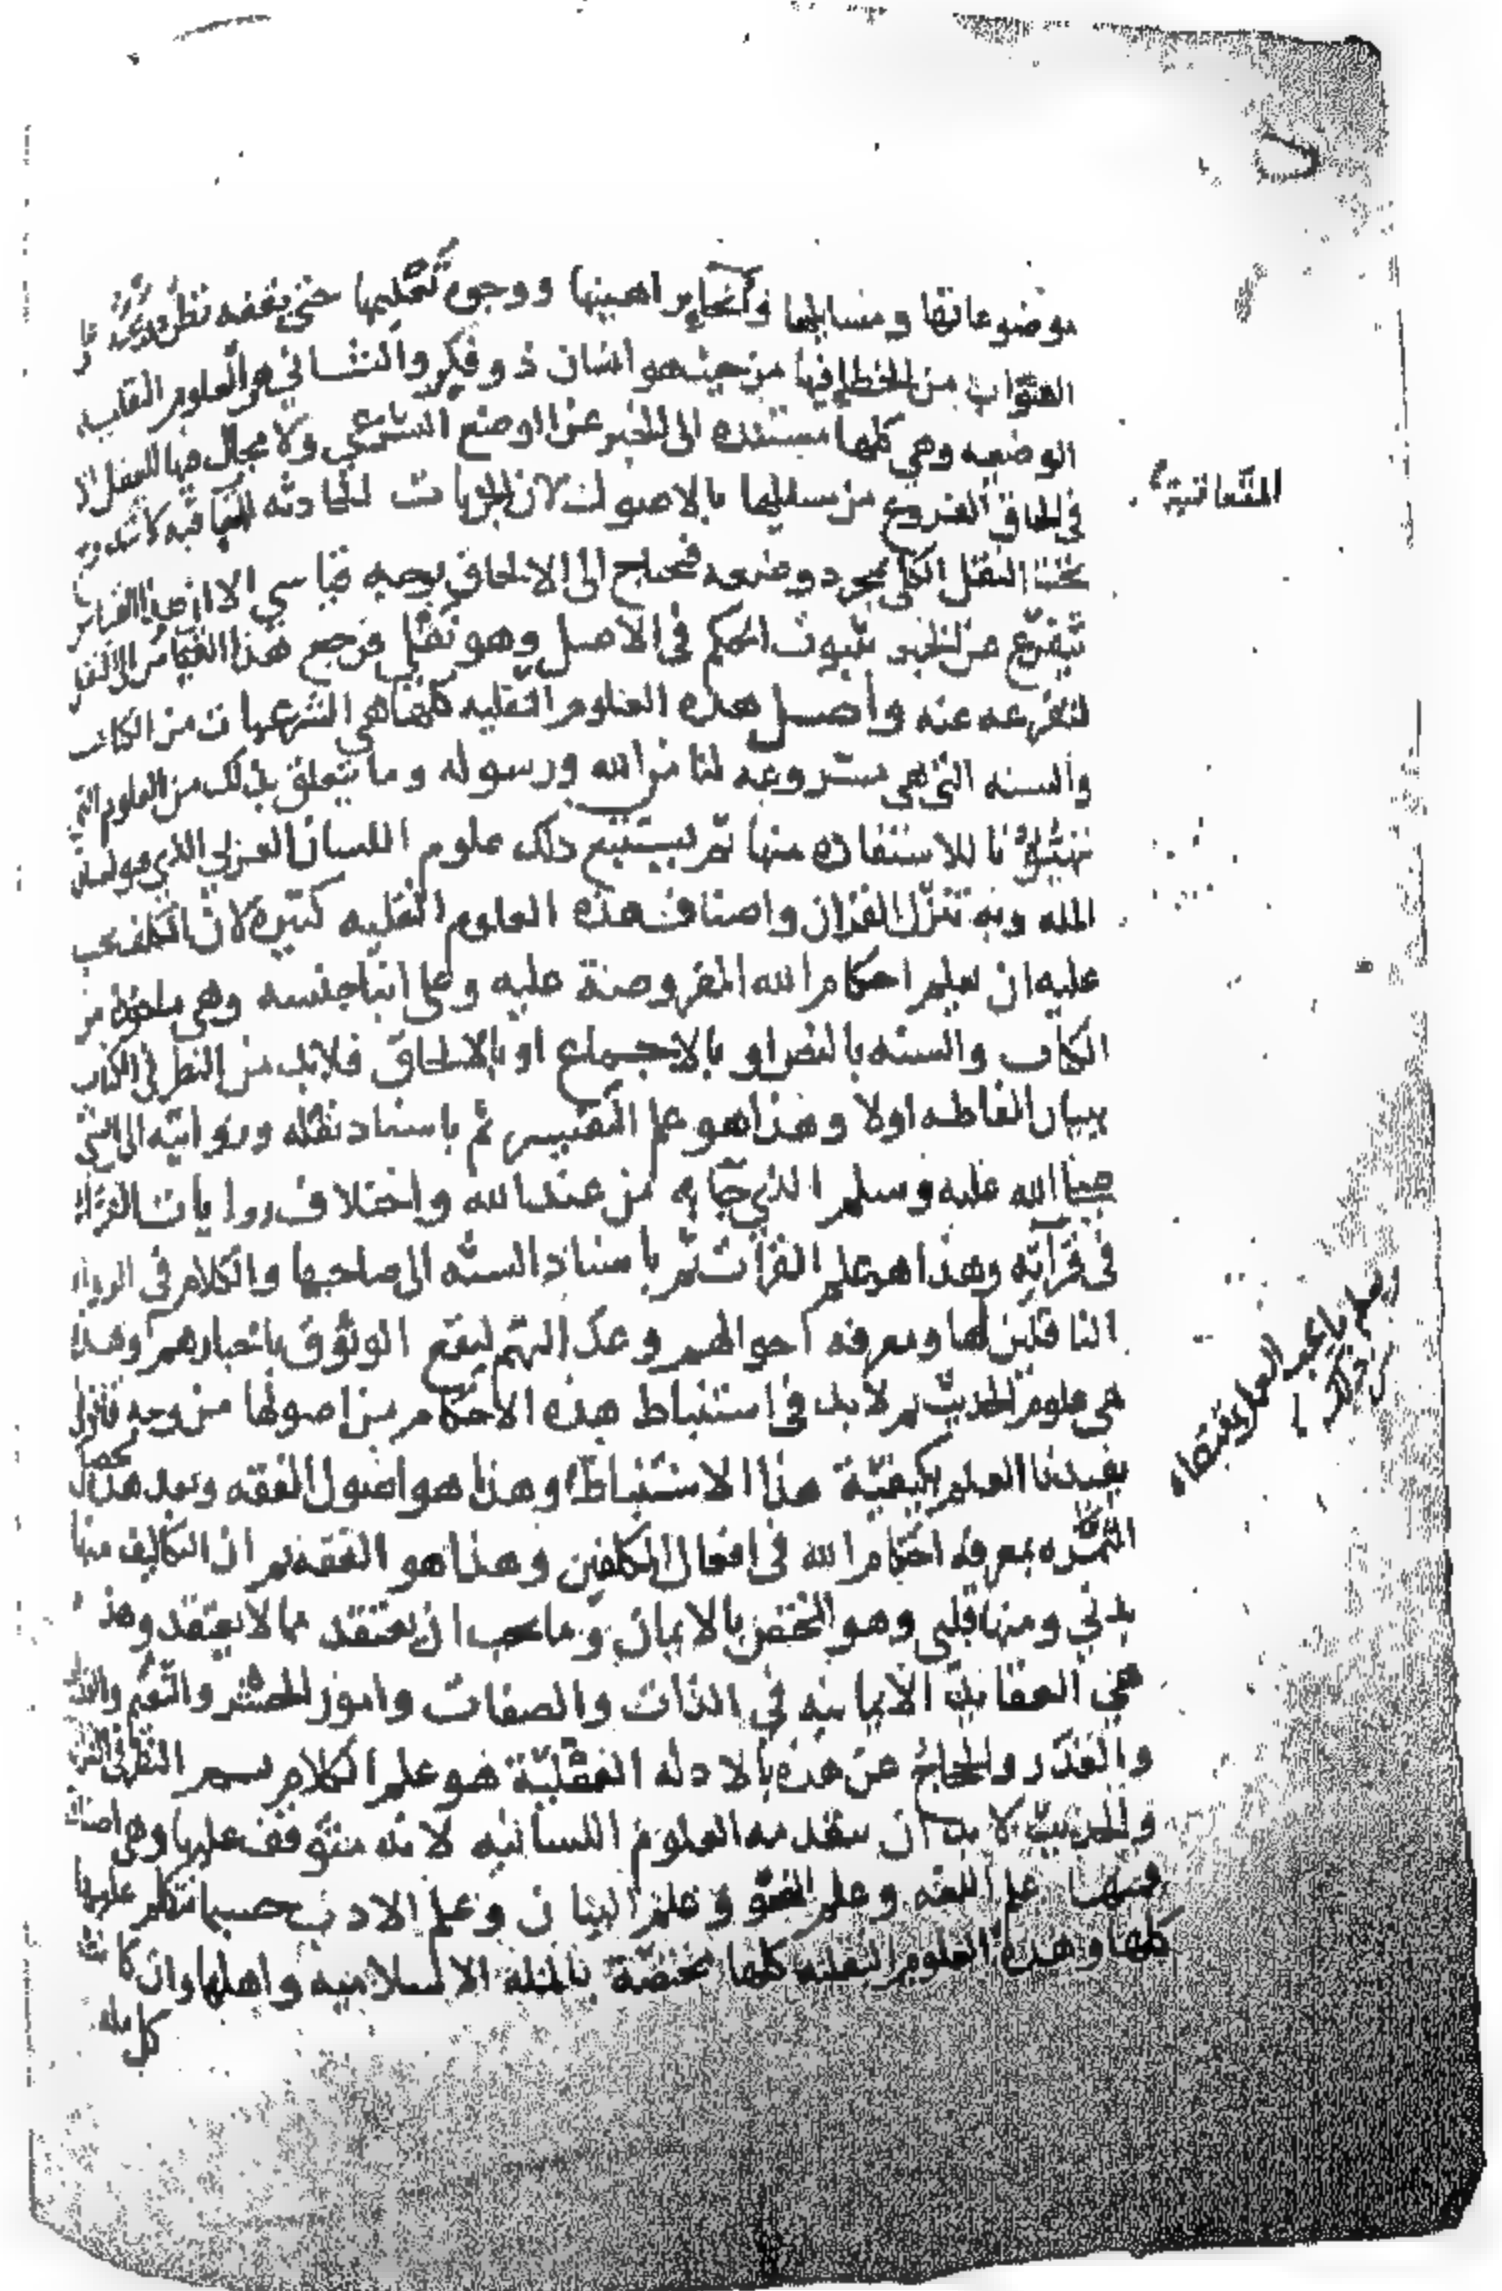 موضوعاتها ومسايلها وانحا براهينها ووجوه تعليمها حتى يقفه نظره
الصواب من الخطإ فيها من حيث هو انسان ذو فكر والثاني هو العلوم النقليه
الوضعيه وهي كلها مستنده الى الخبر عن الوضع الشرعي ولا مجال فيها للعقل الا
في الحاق الفروع من مسايلها بالاصول لان الجزيات الحادثه المتعاقبه لا تندرج
تحت النقل الكلي بمجرد وضعه فتحتاج الى الالحاق بوجه قياسي الا ان هذا القياس
يتفرع عن الخبر بثبوت الحكم في الاصل وهو نقلي فرجع هذا القياس الى النقل
لتفرعه عنه وأصل هذه العلوم النقليه كلها هي الشرعيات من الكتاب
والسنه التي هي مشروعه لنا من الله ورسوله وما يتعلق بذلك من العلوم التي
تهيئونا للاستفاده منها ثم يستتبع ذلك علوم اللسان العربي الذي هو لسان
المله وبه تنزل القران واصناف هذه العلوم النقليه كثيرة لان المكلف يجب
عليه ان يعلم احكام الله المفروضة عليه وعلى ابنا جنسه وهي ماخوذة من
الكتاب والسنه بالنص او بالاجماع او بالالحاق فلابد من النظر في الكتاب
ببيان الفاظه اولا وهذا هو علم التفسير ثم باسناد نقله وروايته الى النبي
صلى الله عليه وسلم الذي جا به من عند الله واختلاف روايات القراء
في قرآته وهذا هو علم القرآت ثم باسناد السنه الى صاحبها والكلام في الرواه
الناقلين لها ومعرفه احوالهم وعدالتهم ليقع الوثوق باخبارهم وهذه
هي علوم الحديث ثم لابد في استنباط هذه الاحكام من اصولها من وجه قانوني
يفيدنا العلم بكيفية هذا الاستنباط وهذا هو اصول الفقه وبعد هذا تحصل
الثمره بمعرفه احكام الله في افعال المكلفين وهذا هو الفقه ثم ان التكاليف منها
بدني ومنها قلبي وهو المختص بالايمان وما يجب ان يعتقد مما لا يعتقد وهذه
هي العقايد الايمانيه في الذات والصفات وامور الحشر والنعيم والعذاب
والقدر والحجاج عن هذه بالادله العقلية هو علم الكلام ثم النظر في القرآن
والحديث لا بد ان يتقدمه العلوم اللسانيه لانه متوقف عليها وهي اصناف
فمنها علم اللغه وعلم النحو وعلم البيان وعلم الادب حسبما نتكلم عليها
كلها وهذه العلوم النقليه كلها مختصة بالمله الاسلاميه واهلها وان كانت
كل مله
المتعاقبة